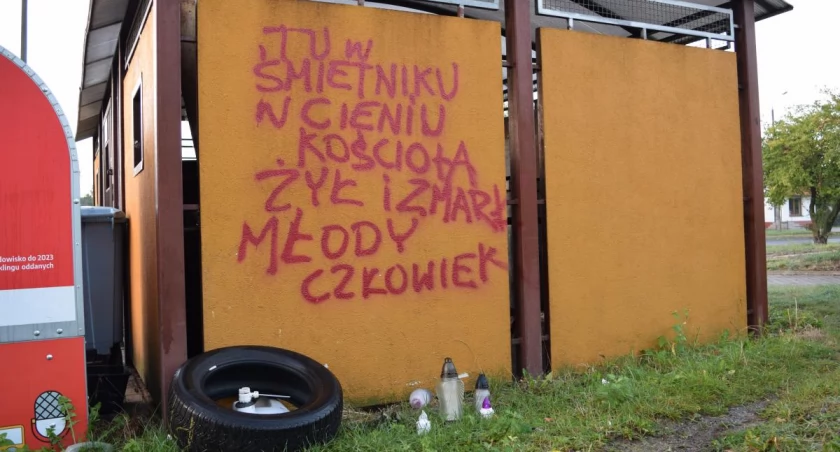 „TU W
ŚMIETNIKU
W CIENIU
KOŚCIOŁA
ŻYŁ i ZMARŁ
MŁODY
CZŁOWIEK
owisko do 2023
klingu oddanych